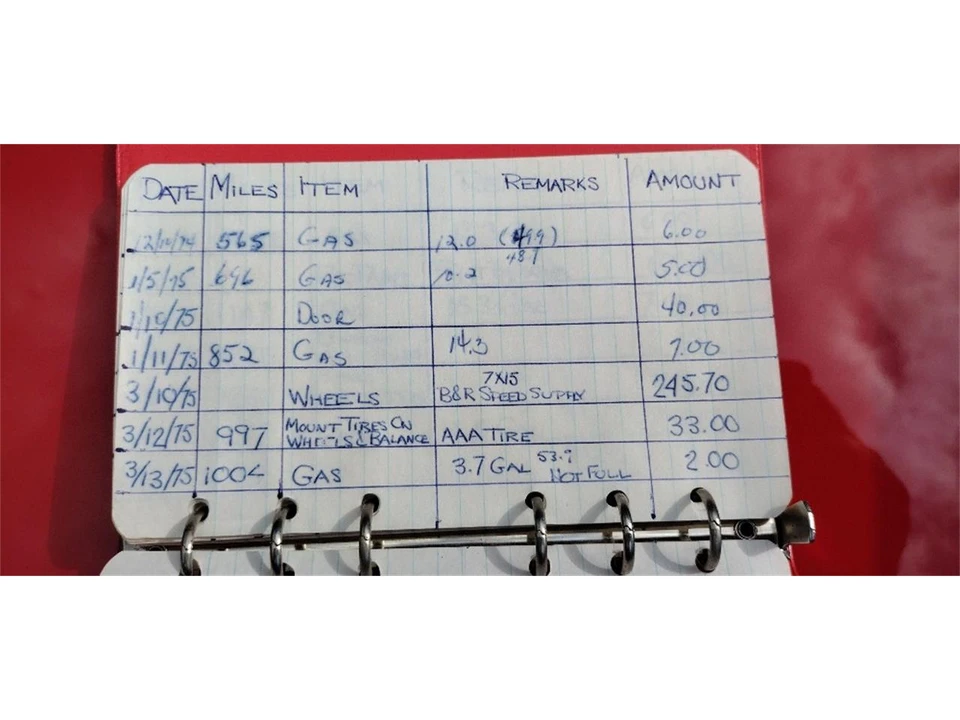 DATE MILES ITEM REMARKS AMOUNT
12/10/74 565 GAS 12.0 (499) 6.00
481
1/5/75 696 GAS 10.2 5.00
1/10/75 DOOR 40.00
1/11/75 852 GAS 14.3 7.00
3/10/75 WHEELS 7X15 B&R SPEED SUPPLY 245.70
3/12/75 997 MOUNT TIRES ON AAA TIRE 33.00
WHEELS & BALANCE
3/13/75 1004 GAS 3.7 GAL 53.9 NOT FULL 2.00